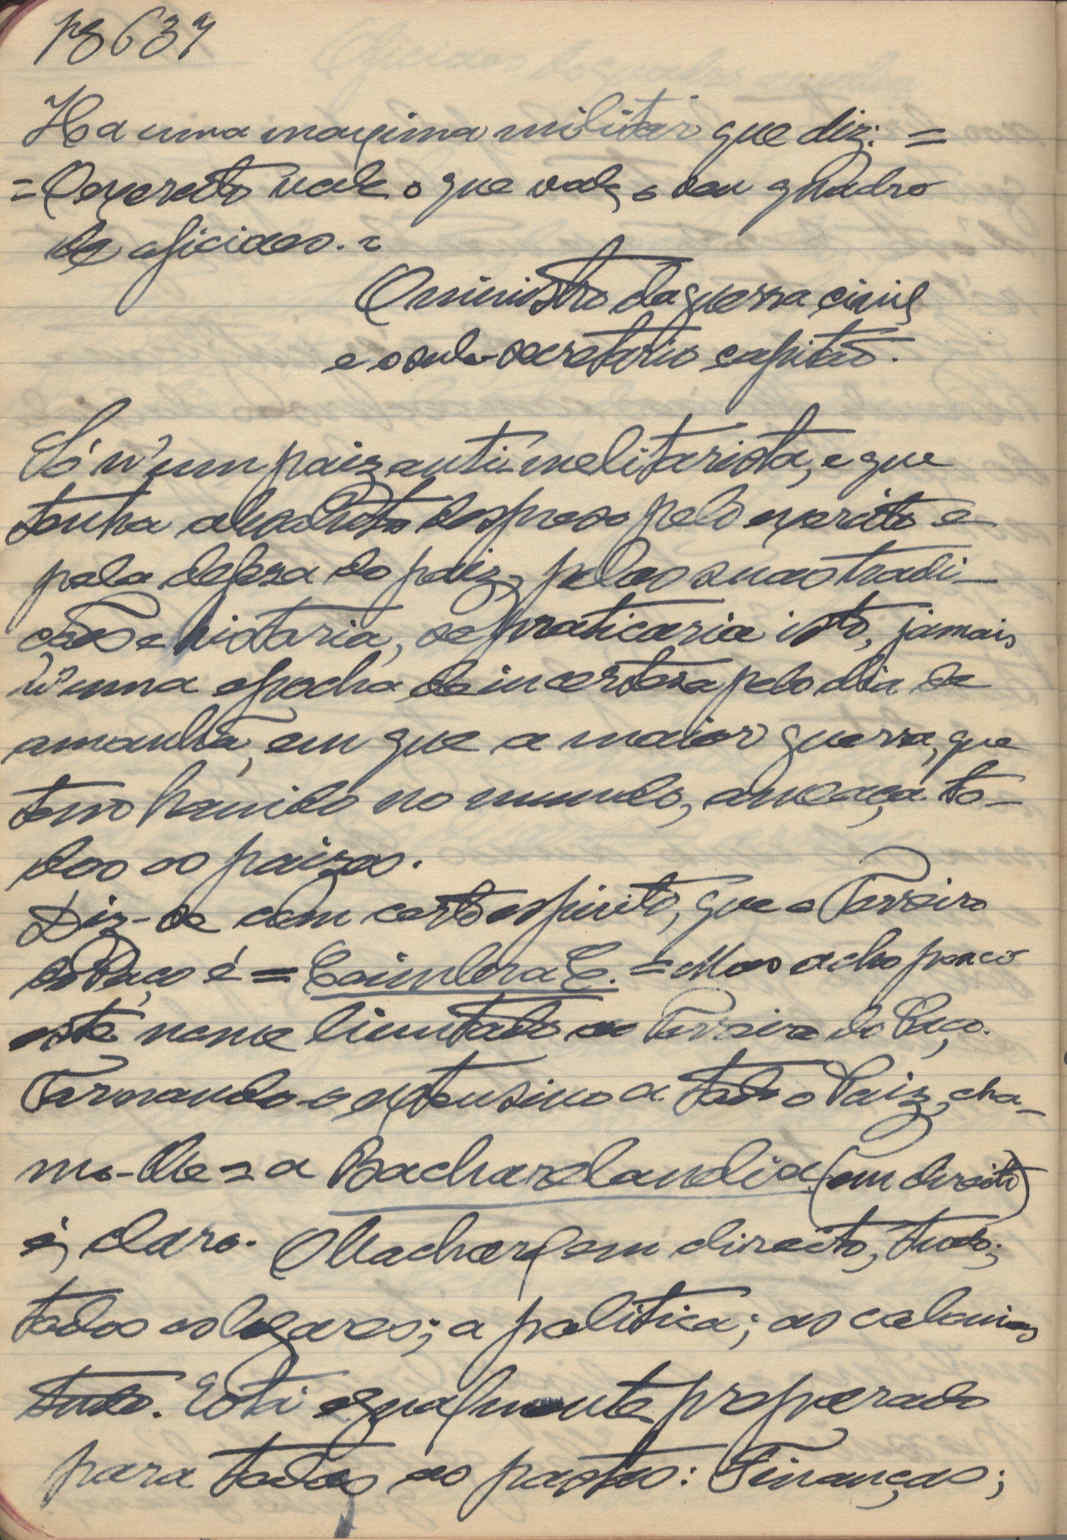 pg 637
Ha uma maxima militar que diz: =
= O exercito vale o que vale o seu quadro
de oficiaes. =
O ministro da guerra, civil
e o sub-secretario capitão.
Só n'um paiz anti-melitarista, e que
tenha absoluto despreso pelo exercito e
pela defeza do paiz, pelas suas tradi-
ções e historia, se praticaria isto, jamais
n'uma epocha de incerteza pelo dia de
amanhã, em que a maior guerra, que
tem havido no mundo, ameaça to-
dos os paizes.
Diz-se com certo espirito, que o Terreiro
do Paço é = Coimbra C. = Mas acho pouco
este nome limitado ao Terreiro do Paço.
Tornando-o extensivo a todo o Paiz, cha-
mo-lhe = a Bacharelandia (em direito)
é, claro. O Bacharel em direito, tudo;
todos os logares; a politica; as colonias
tudo. Está egualmente preparado
para todas as pastas: Finanças;